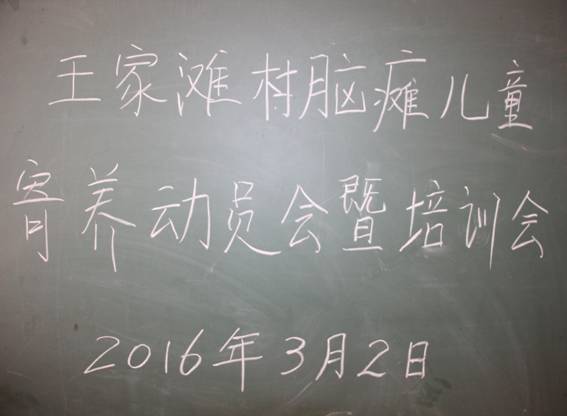 王家滩村脑瘫儿童
寄养动员会暨培训会
2016年3月2日